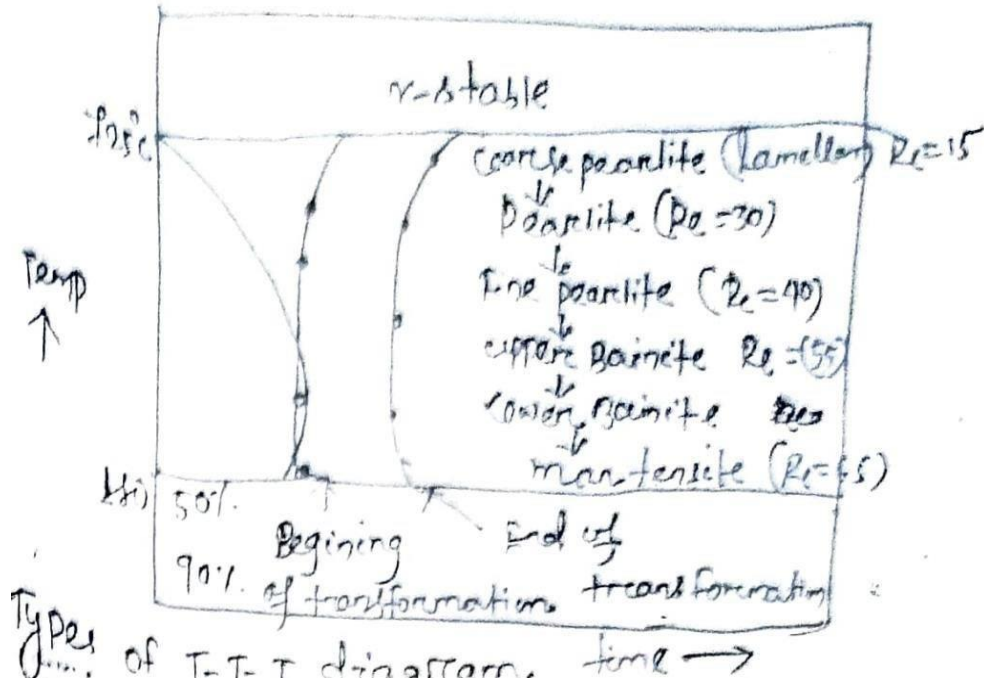 γ-stable
coarse pearlite (lamellar) Rc=15
Pearlite (Rc=30)
Fine pearlite (Rc=40)
upper Bainite Rc=(55)
Lower Bainite
martensite
Temp
50%.
90%.
Begining of transformation
End of transformation
time
Types of T-T-T diagram.